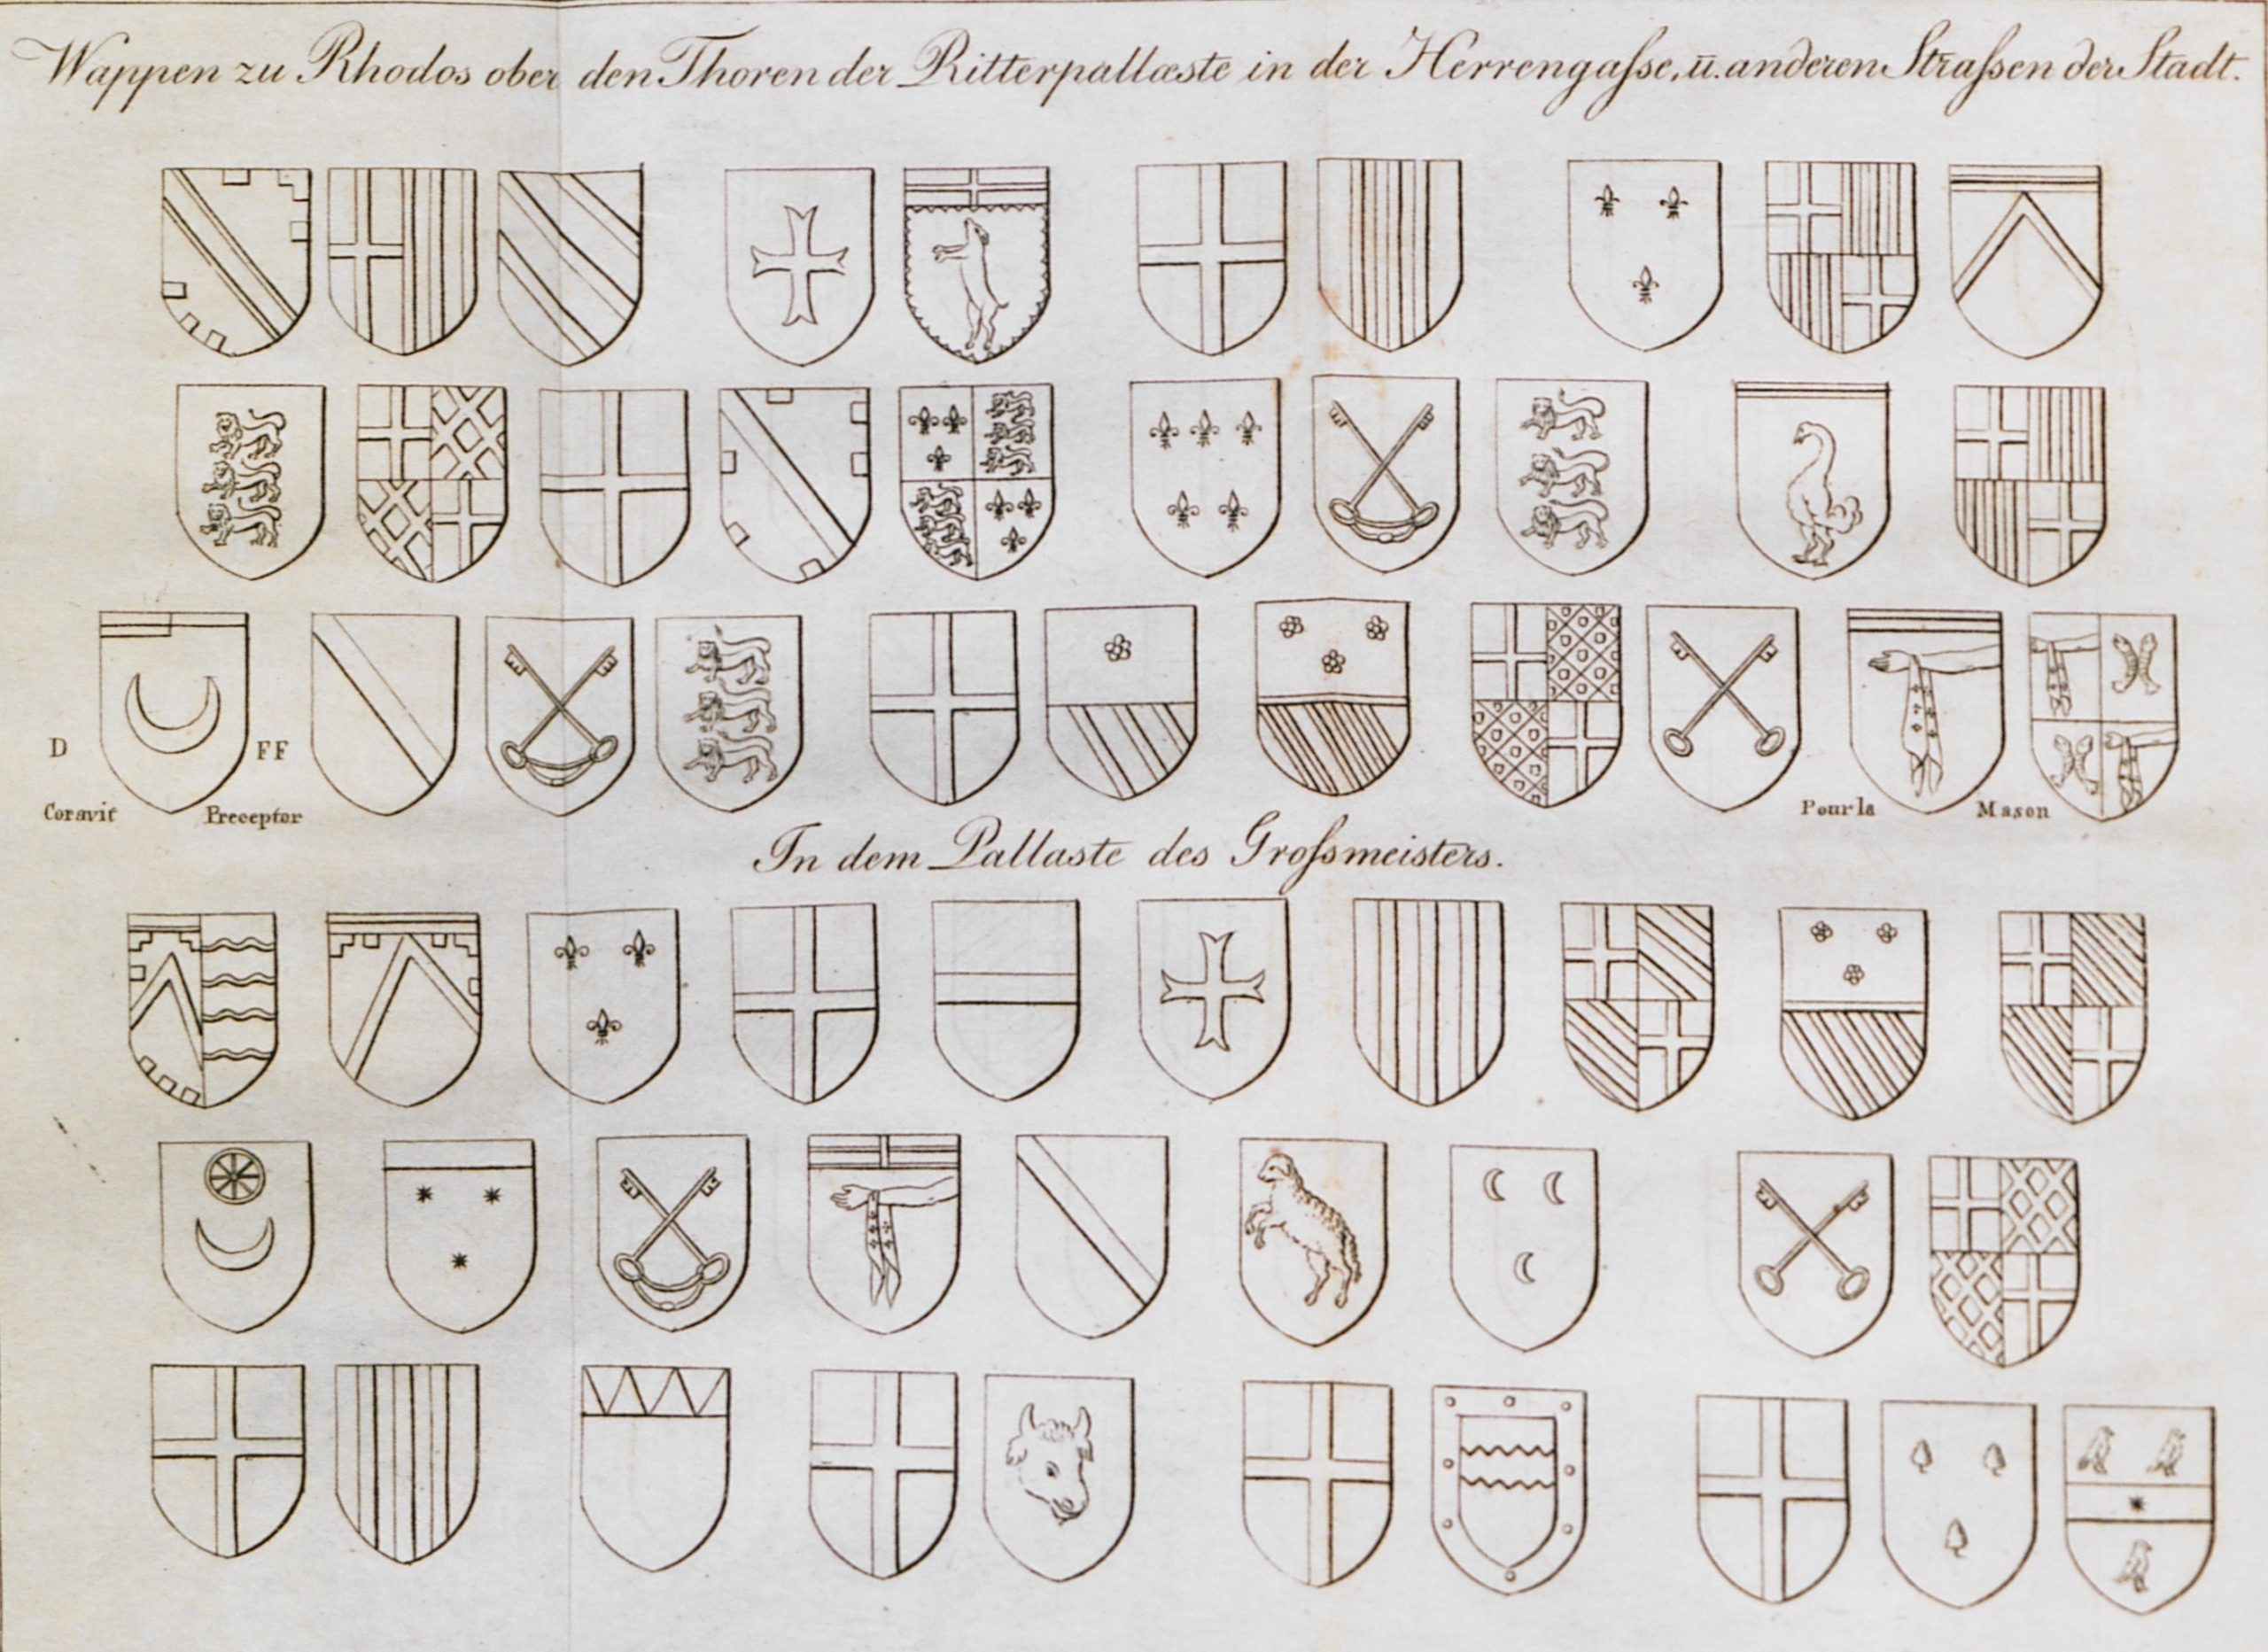 Wappen zu Rhodos ober den Thoren der Ritterpallæste in der Herrengaſse, ū. anderen Straſsen der Stadt.
D FF
Coravit Preceptor
Pour la Mason
In dem Pallaste des Groſsmeisters.